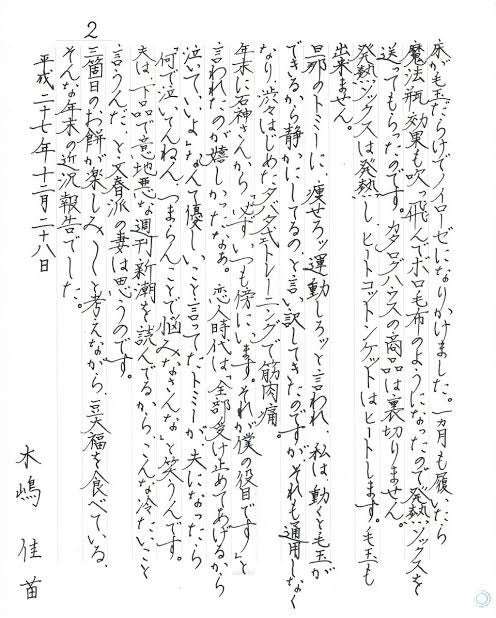 2
床が毛玉だらけでノイローゼになりかけました。一カ月も履いたら
魔法瓶効果も吹っ飛んでボロ毛布のようになったので発熱ソックスを
送ってもらったのです。カタログハウスの商品は裏切りません。
発熱ソックスは発熱し、ヒートコットンケットはヒートします。毛玉も
出来ません。
旦那のトミーに、痩せろッ運動しろッと言われ、私は動くと毛玉が
できるから静かにしてるの、と言い訳してきたのですがそれも通用しなく
なり、渋々はじめたタバタ式トレーニングで筋肉痛。
年末に石神さんから「いずいつも傍にいます。それが僕の役目です」と
言われたのが嬉しかったなあ。恋人時代は「全部受け止めてあげるから
泣いていいよ」なんて優しいこと言ってたトミーが夫になったら
「何で泣いてんねん。つまらんことで悩みなさんな」と笑うんです。
夫は下品で意地悪な週刊新潮を読んでるからこんな冷たいこと
言うんだ、と文春派の妻は思うのです。
三箇日のお餅が楽しみ〱と考えながら、豆大福を食べている、
そんな年末の近況報告でした。
平成二十七年十二月二十八日
木嶋 佳苗